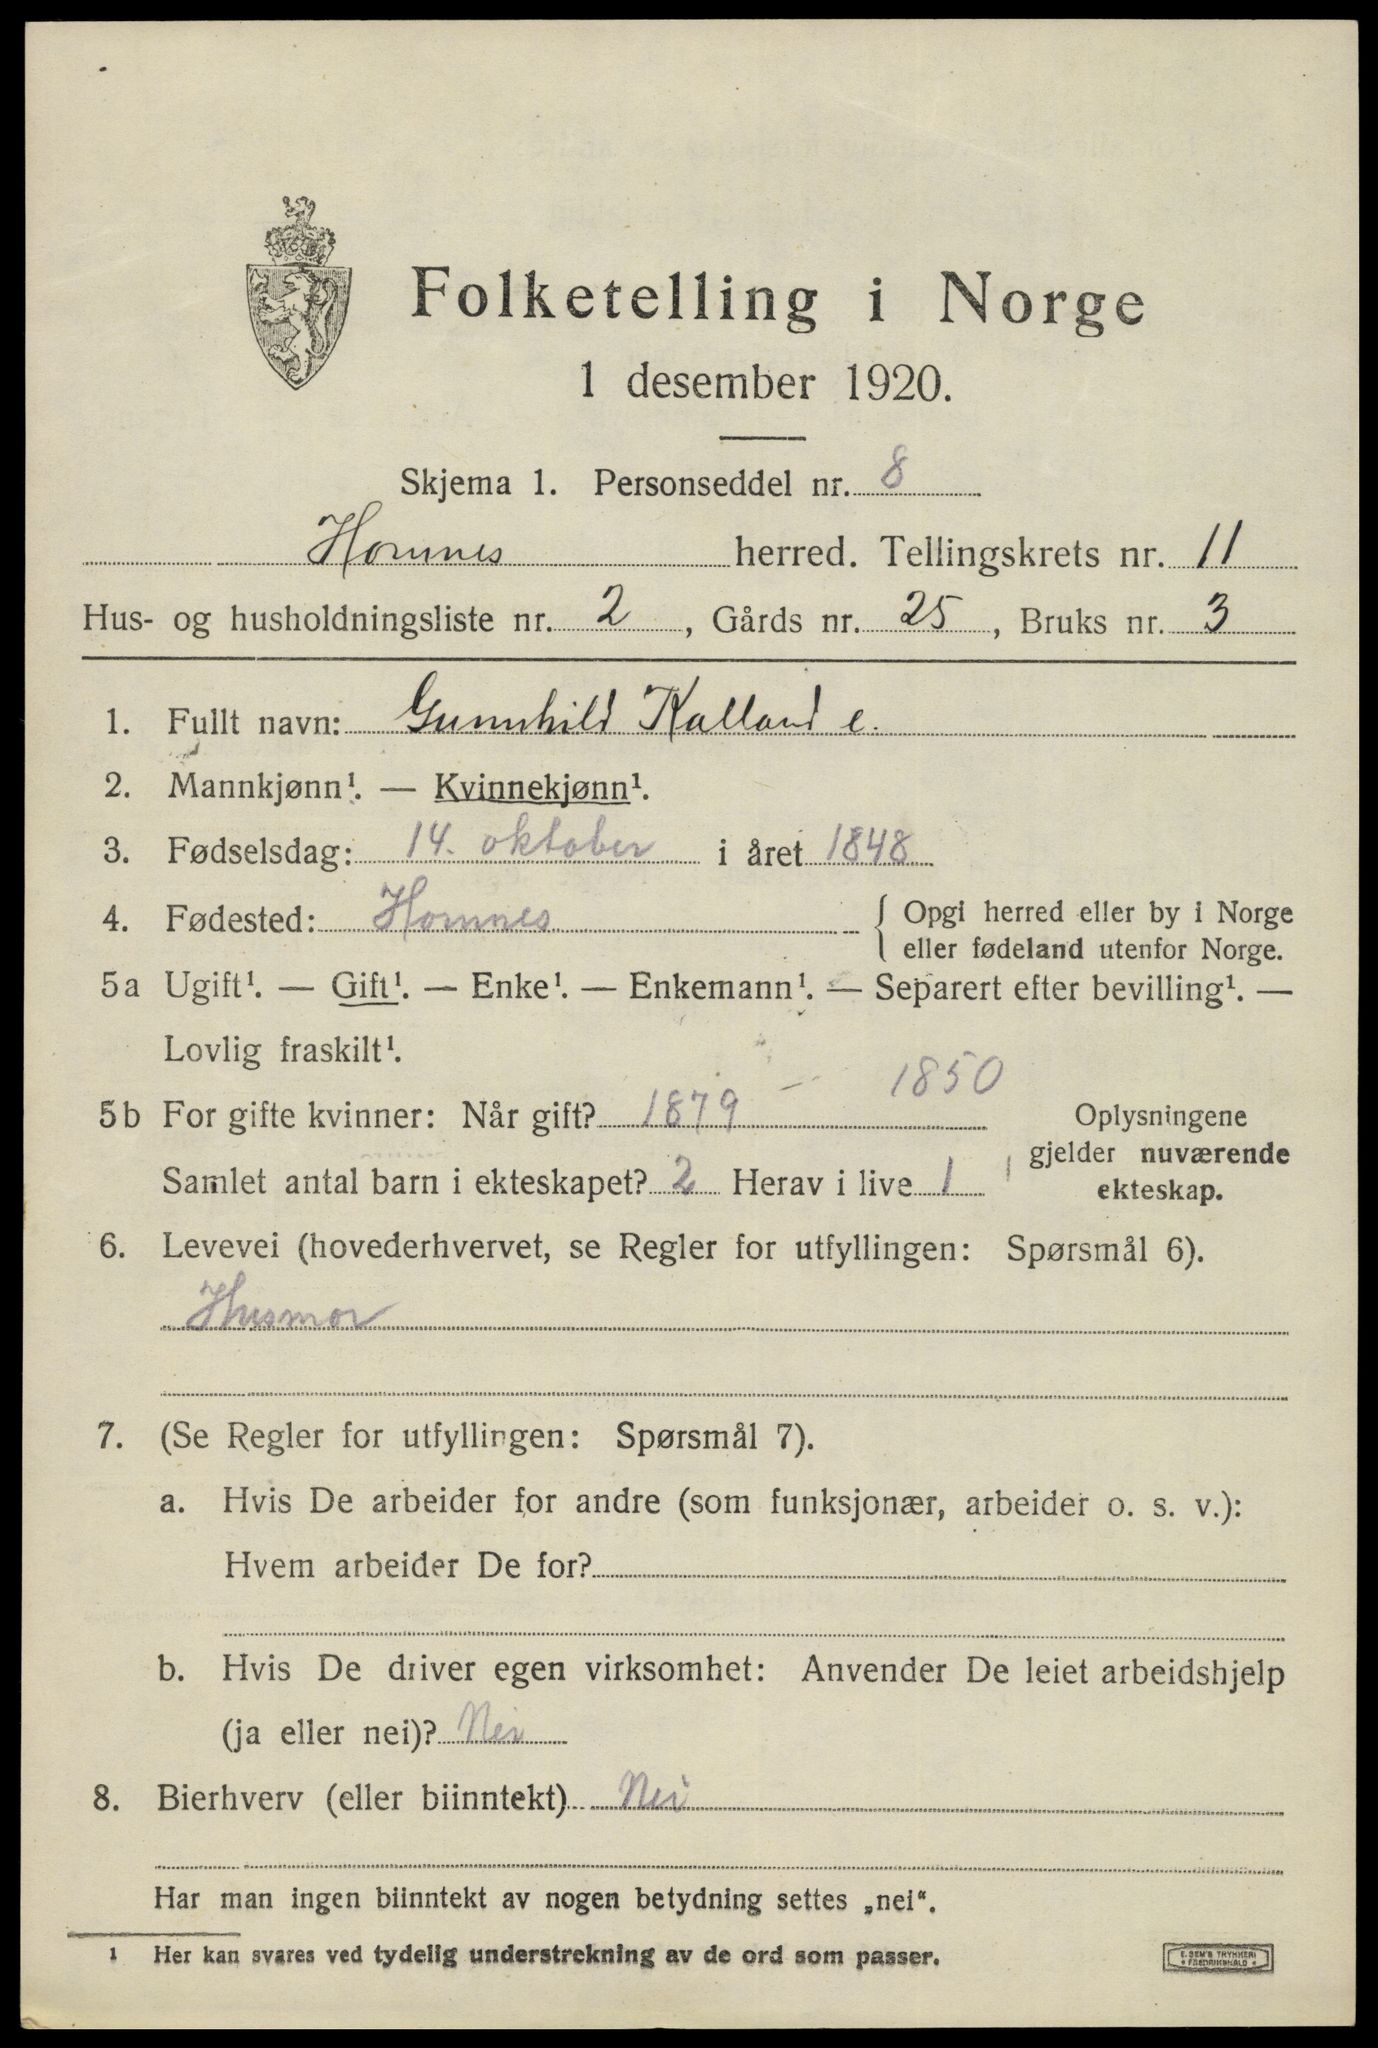 Folketelling i Norge
1 desember 1920.
Skjema 1. Personseddel nr. 8
Hornnes herred. Tellingskrets nr. 11
Hus- og husholdningsliste nr. 2, Gårds nr. 25, Bruks nr. 3
1. Fullt navn: Gunnhild Kalland e.
2. Mannkjønn¹. — Kvinnekjønn¹.
3. Fødselsdag: 14. oktober i året 1848
4. Fødested: Hornnes { Opgi herred eller by i Norge
eller fødeland utenfor Norge.
5a Ugift¹. — Gift¹. — Enke¹. — Enkemann¹. — Separert efter bevilling¹. —
Lovlig fraskilt¹.
1850
5b For gifte kvinner: Når gift? 1879 Oplysningene
gjelder nuværende
Samlet antal barn i ekteskapet? 2 Herav i live 1 ekteskap.
6. Levevei (hovederhvervet, se Regler for utfyllingen: Spørsmål 6).
Husmor
7. (Se Regler for utfyllingen: Spørsmål 7).
a. Hvis De arbeider for andre (som funksjonær, arbeider o. s. v.):
Hvem arbeider De for?
b. Hvis De driver egen virksomhet: Anvender De leiet arbeidshjelp
(ja eller nei)? Nei
8. Bierhverv (eller biinntekt) Nei
Har man ingen biinntekt av nogen betydning settes „nei“.
1 Her kan svares ved tydelig understrekning av de ord som passer.
E. SEM'S TRYKKERI
• FREDRIKSHALD •